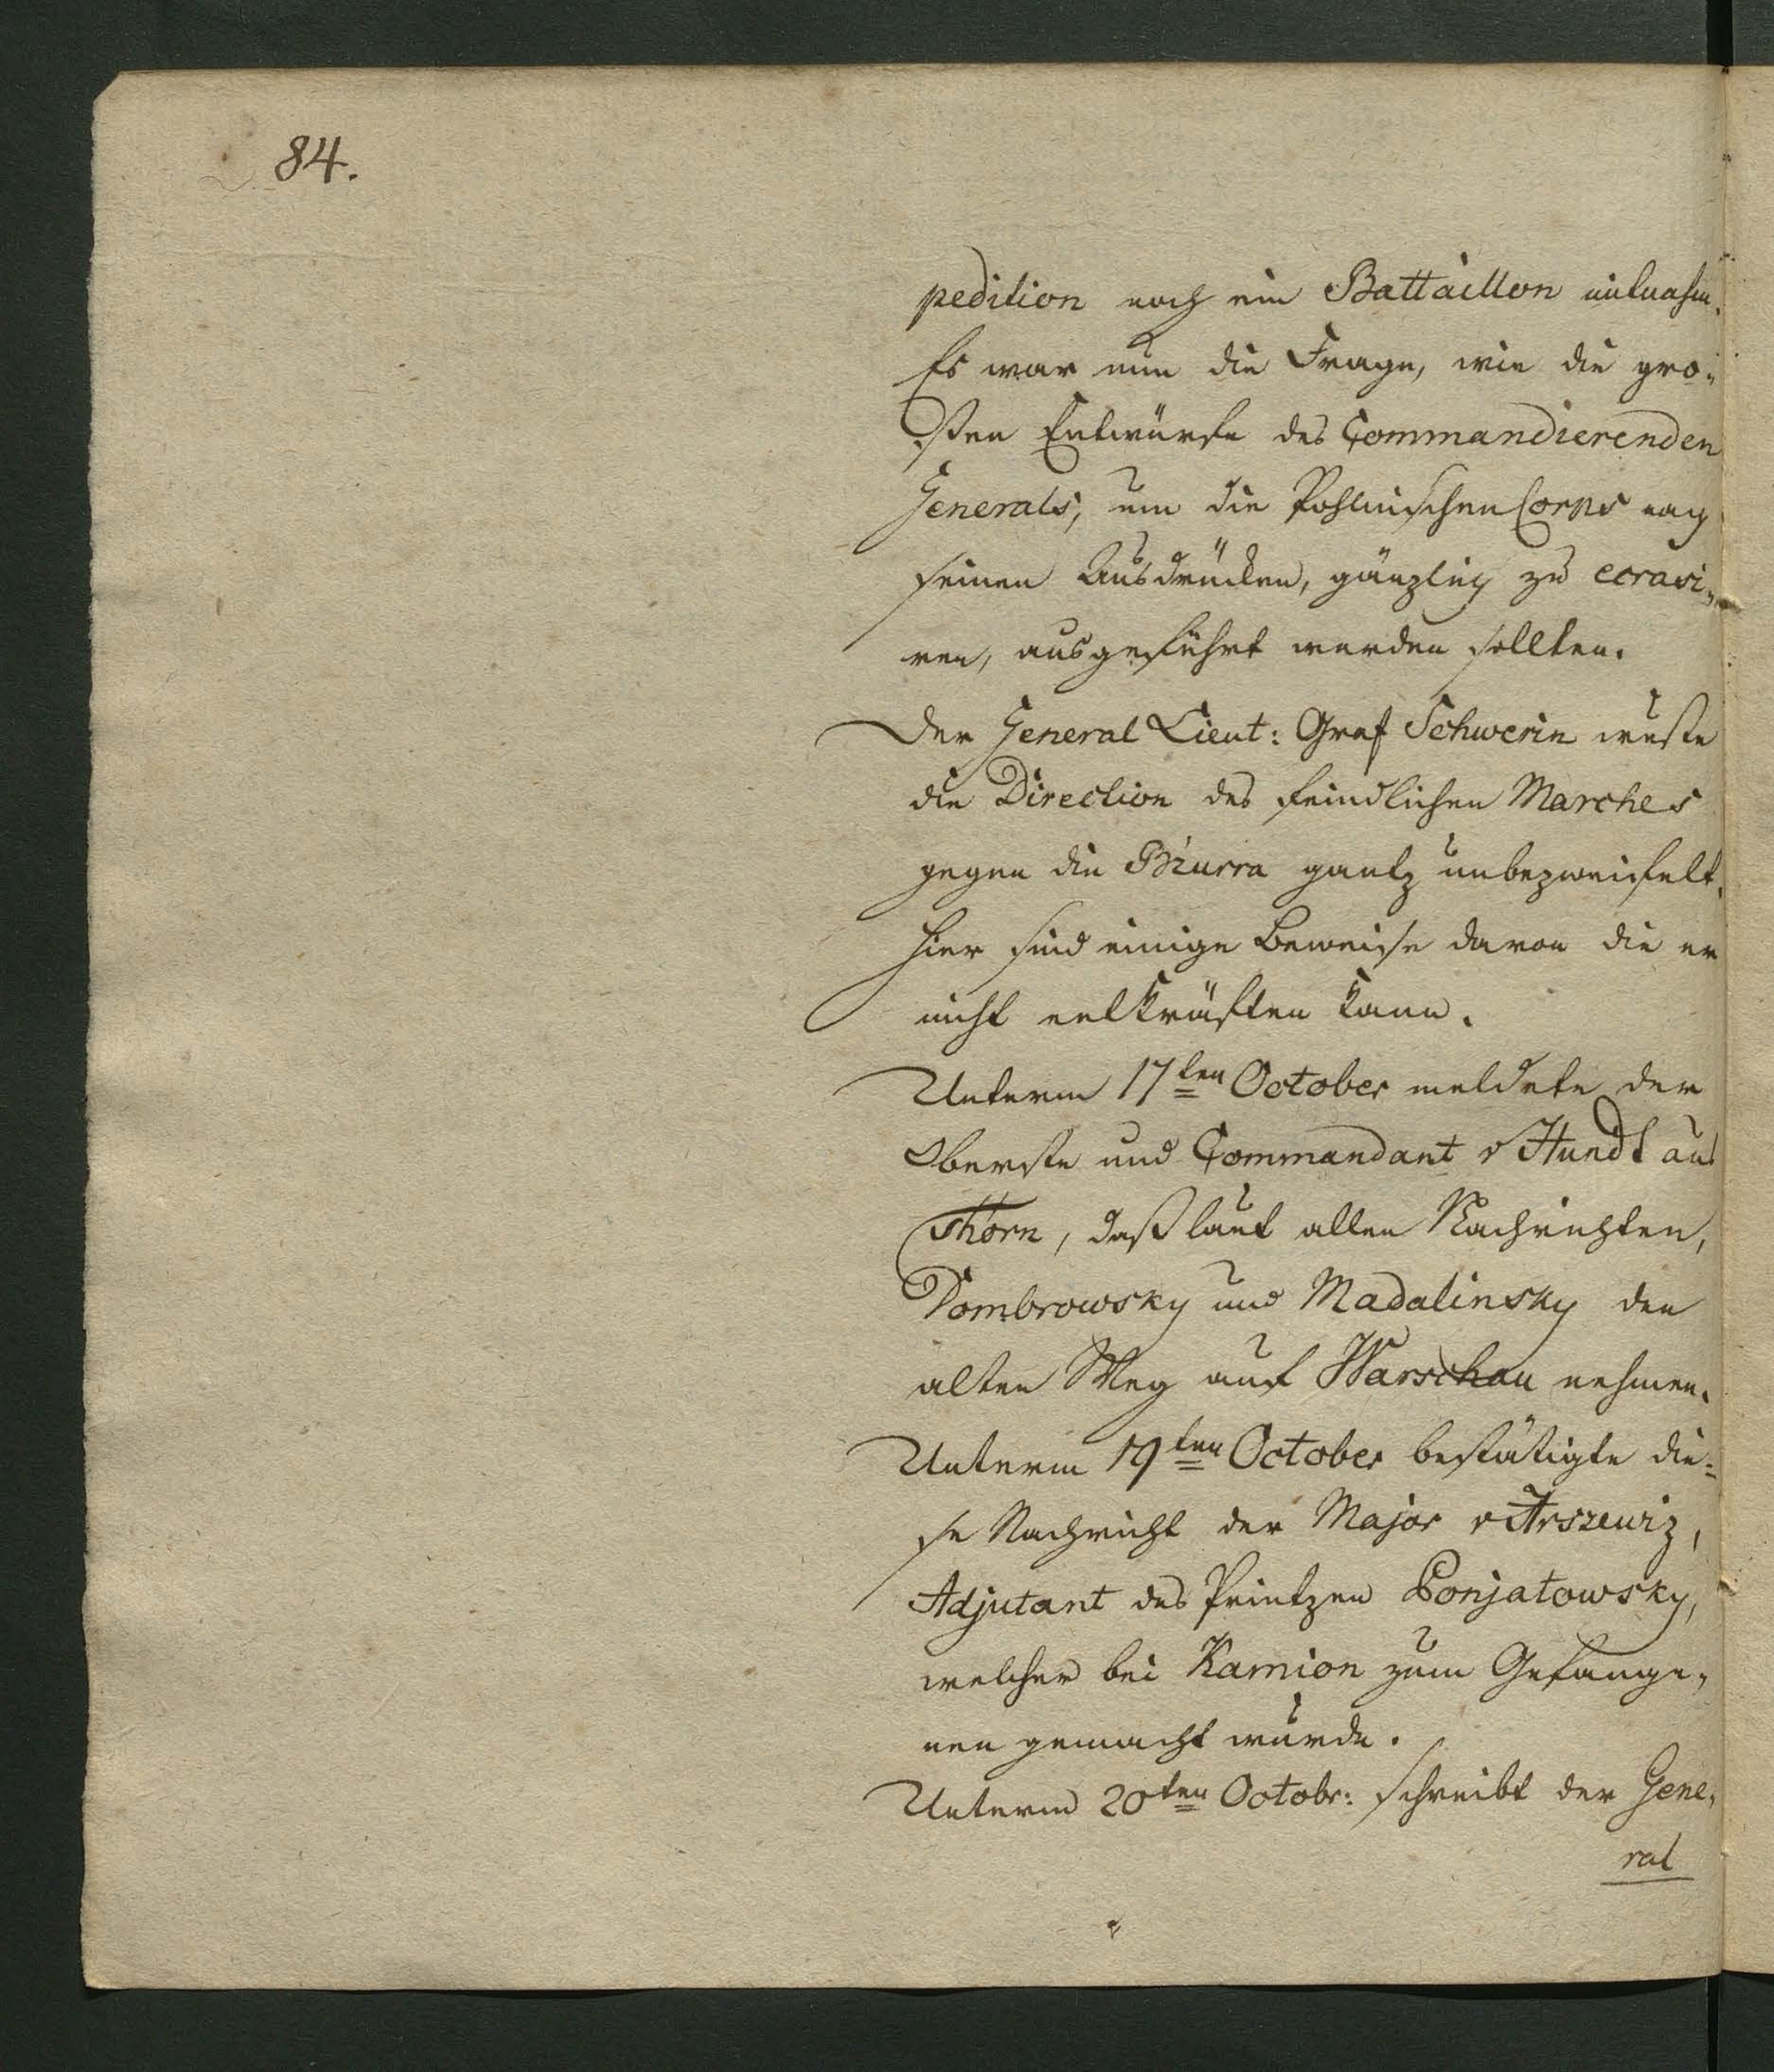 84.
pedition noch ein Battaillon mitnahm.
Es war nun die Frage, wie die gro-
ßen Entwürfe des Commandierenden
Generals, um die Pohlnischen Corps nach
seinen Ausdrücken, gänzlich zu ecrasi-
ren, ausgeführt werden sollten.
Der General Lieut: Graf Schwerin wuste
die Direction des feindlichen Marches
gegen die Bzurra gantz unbezweifelt.
Hier sind einige Beweise davon die er
nicht entkräften kann.
Unterm 17ten October meldete der
Oberste und Commandant v Hundt aus
Thorn, daß laut allen Nachrichten,
Dombrowsky und Madalinsky den
alten Weg auf Warschau nehmen.
Unterm 19ten October bestätigte die=
se Nachricht der Major v Arszewiz,
Adjutant des Printzen Ponjatowsky,
welcher bei Kamion zum Gefange-
nen gemacht wurde.
Unterm 20ten Octobr: schreibt der Gene-
ral